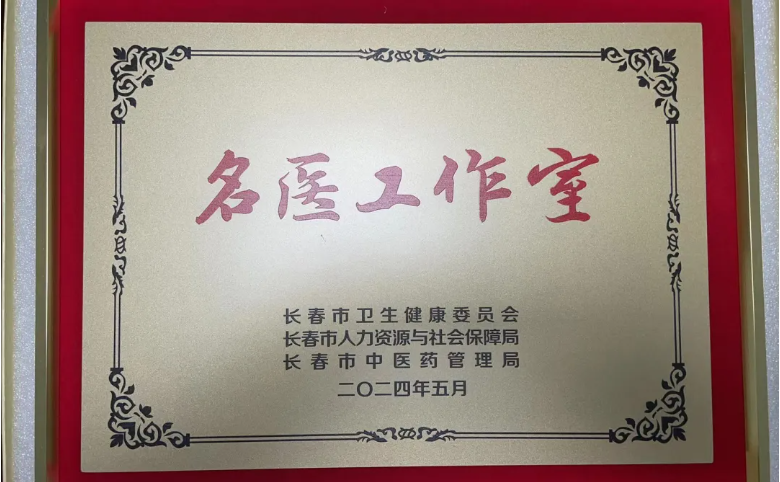 名医工作室
长春市卫生健康委员会
长春市人力资源与社会保障局
长春市中医药管理局
二〇二四年五月